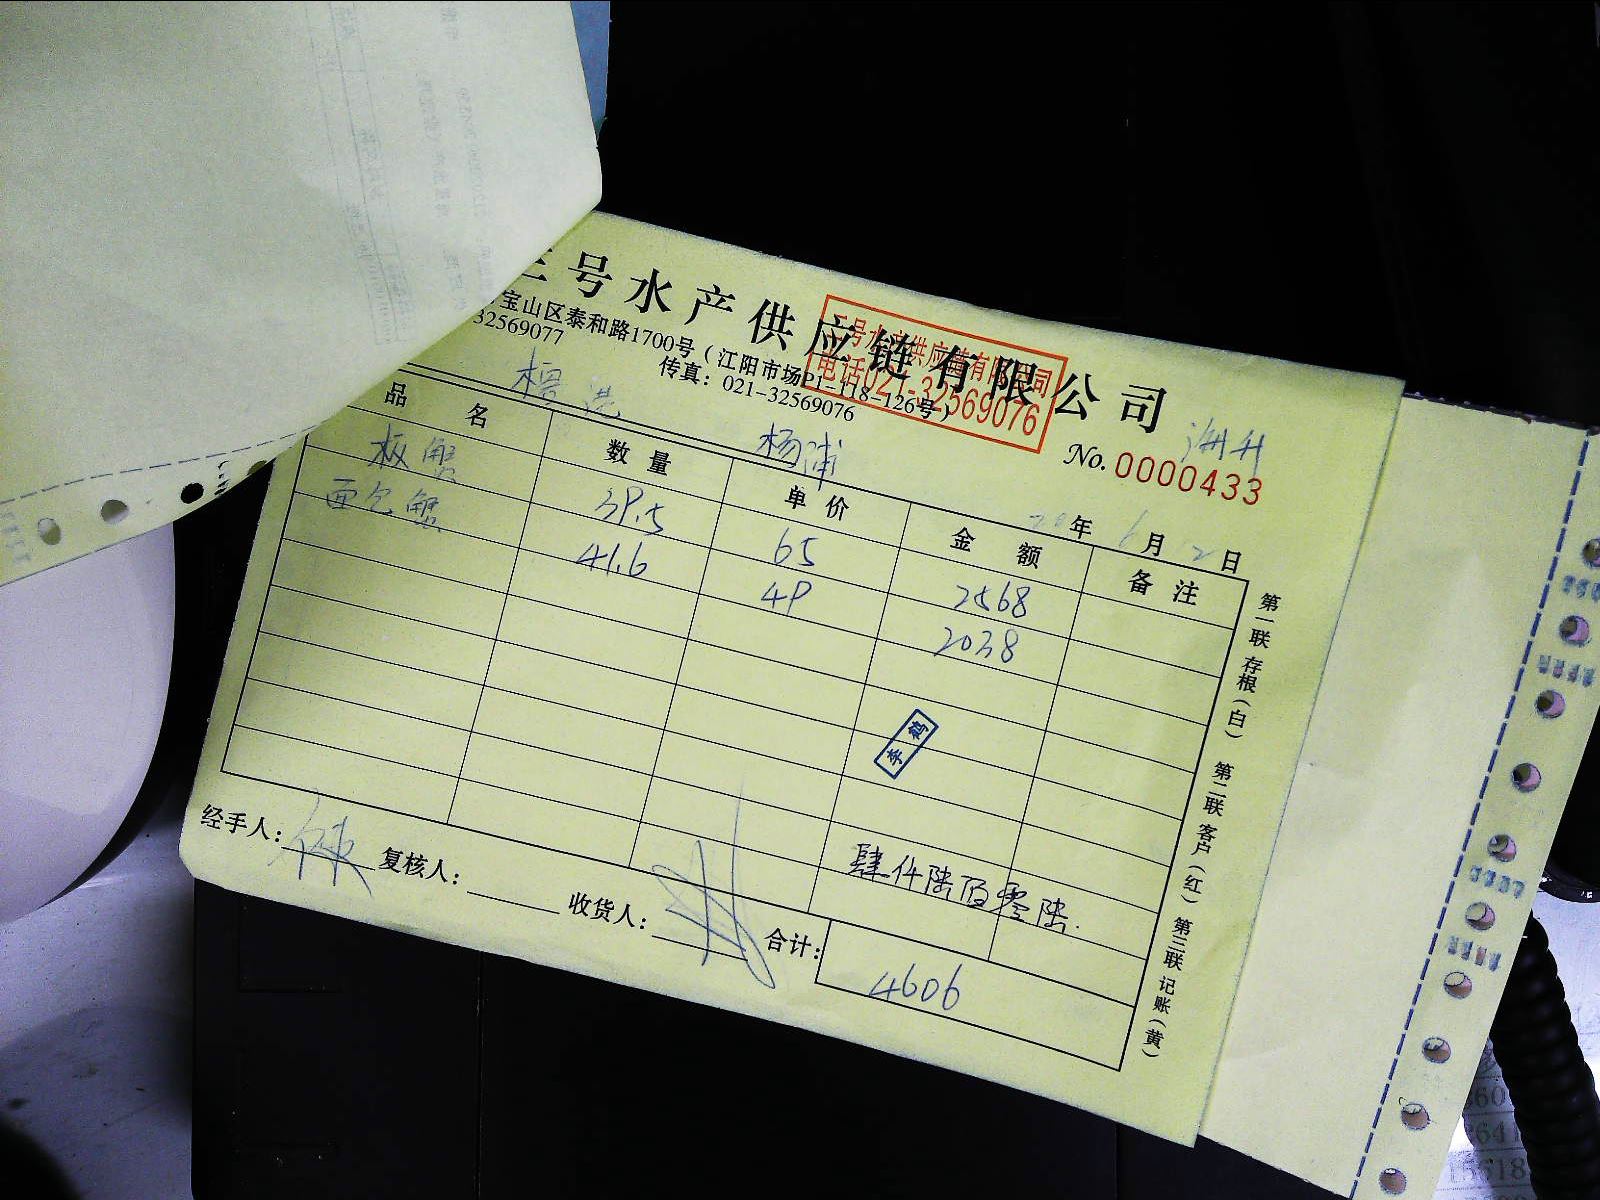 三号水产供应链有限公司
宝山区泰和路1700号（江阳市场P1-118-126号）
32569077 传真：021-32569076
三号水产供应链有限公司
电话021-32569076
杨浦
海升
No. 0000433
20年 6月 2日
品名 数量 单价 金额 备注
板蟹 39.5 65 2568
面包蟹 41.6 49 2038
李鹤
肆仟陆佰零陆.
经手人： 复核人： 收货人： 合计： 4606
第一联 存根（白） 第二联 客户（红） 第三联 记账（黄）